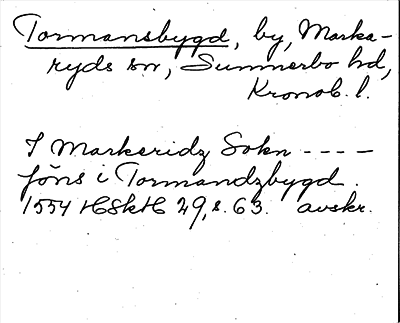 Tormansbygd, by, Marka-
ryds sn, Sunnerbo hd,
Kronob. l.
I Markeridz Sokn ----
föns i Tormandzbygd.
1554 HSkH 29, s. 63. avskr.